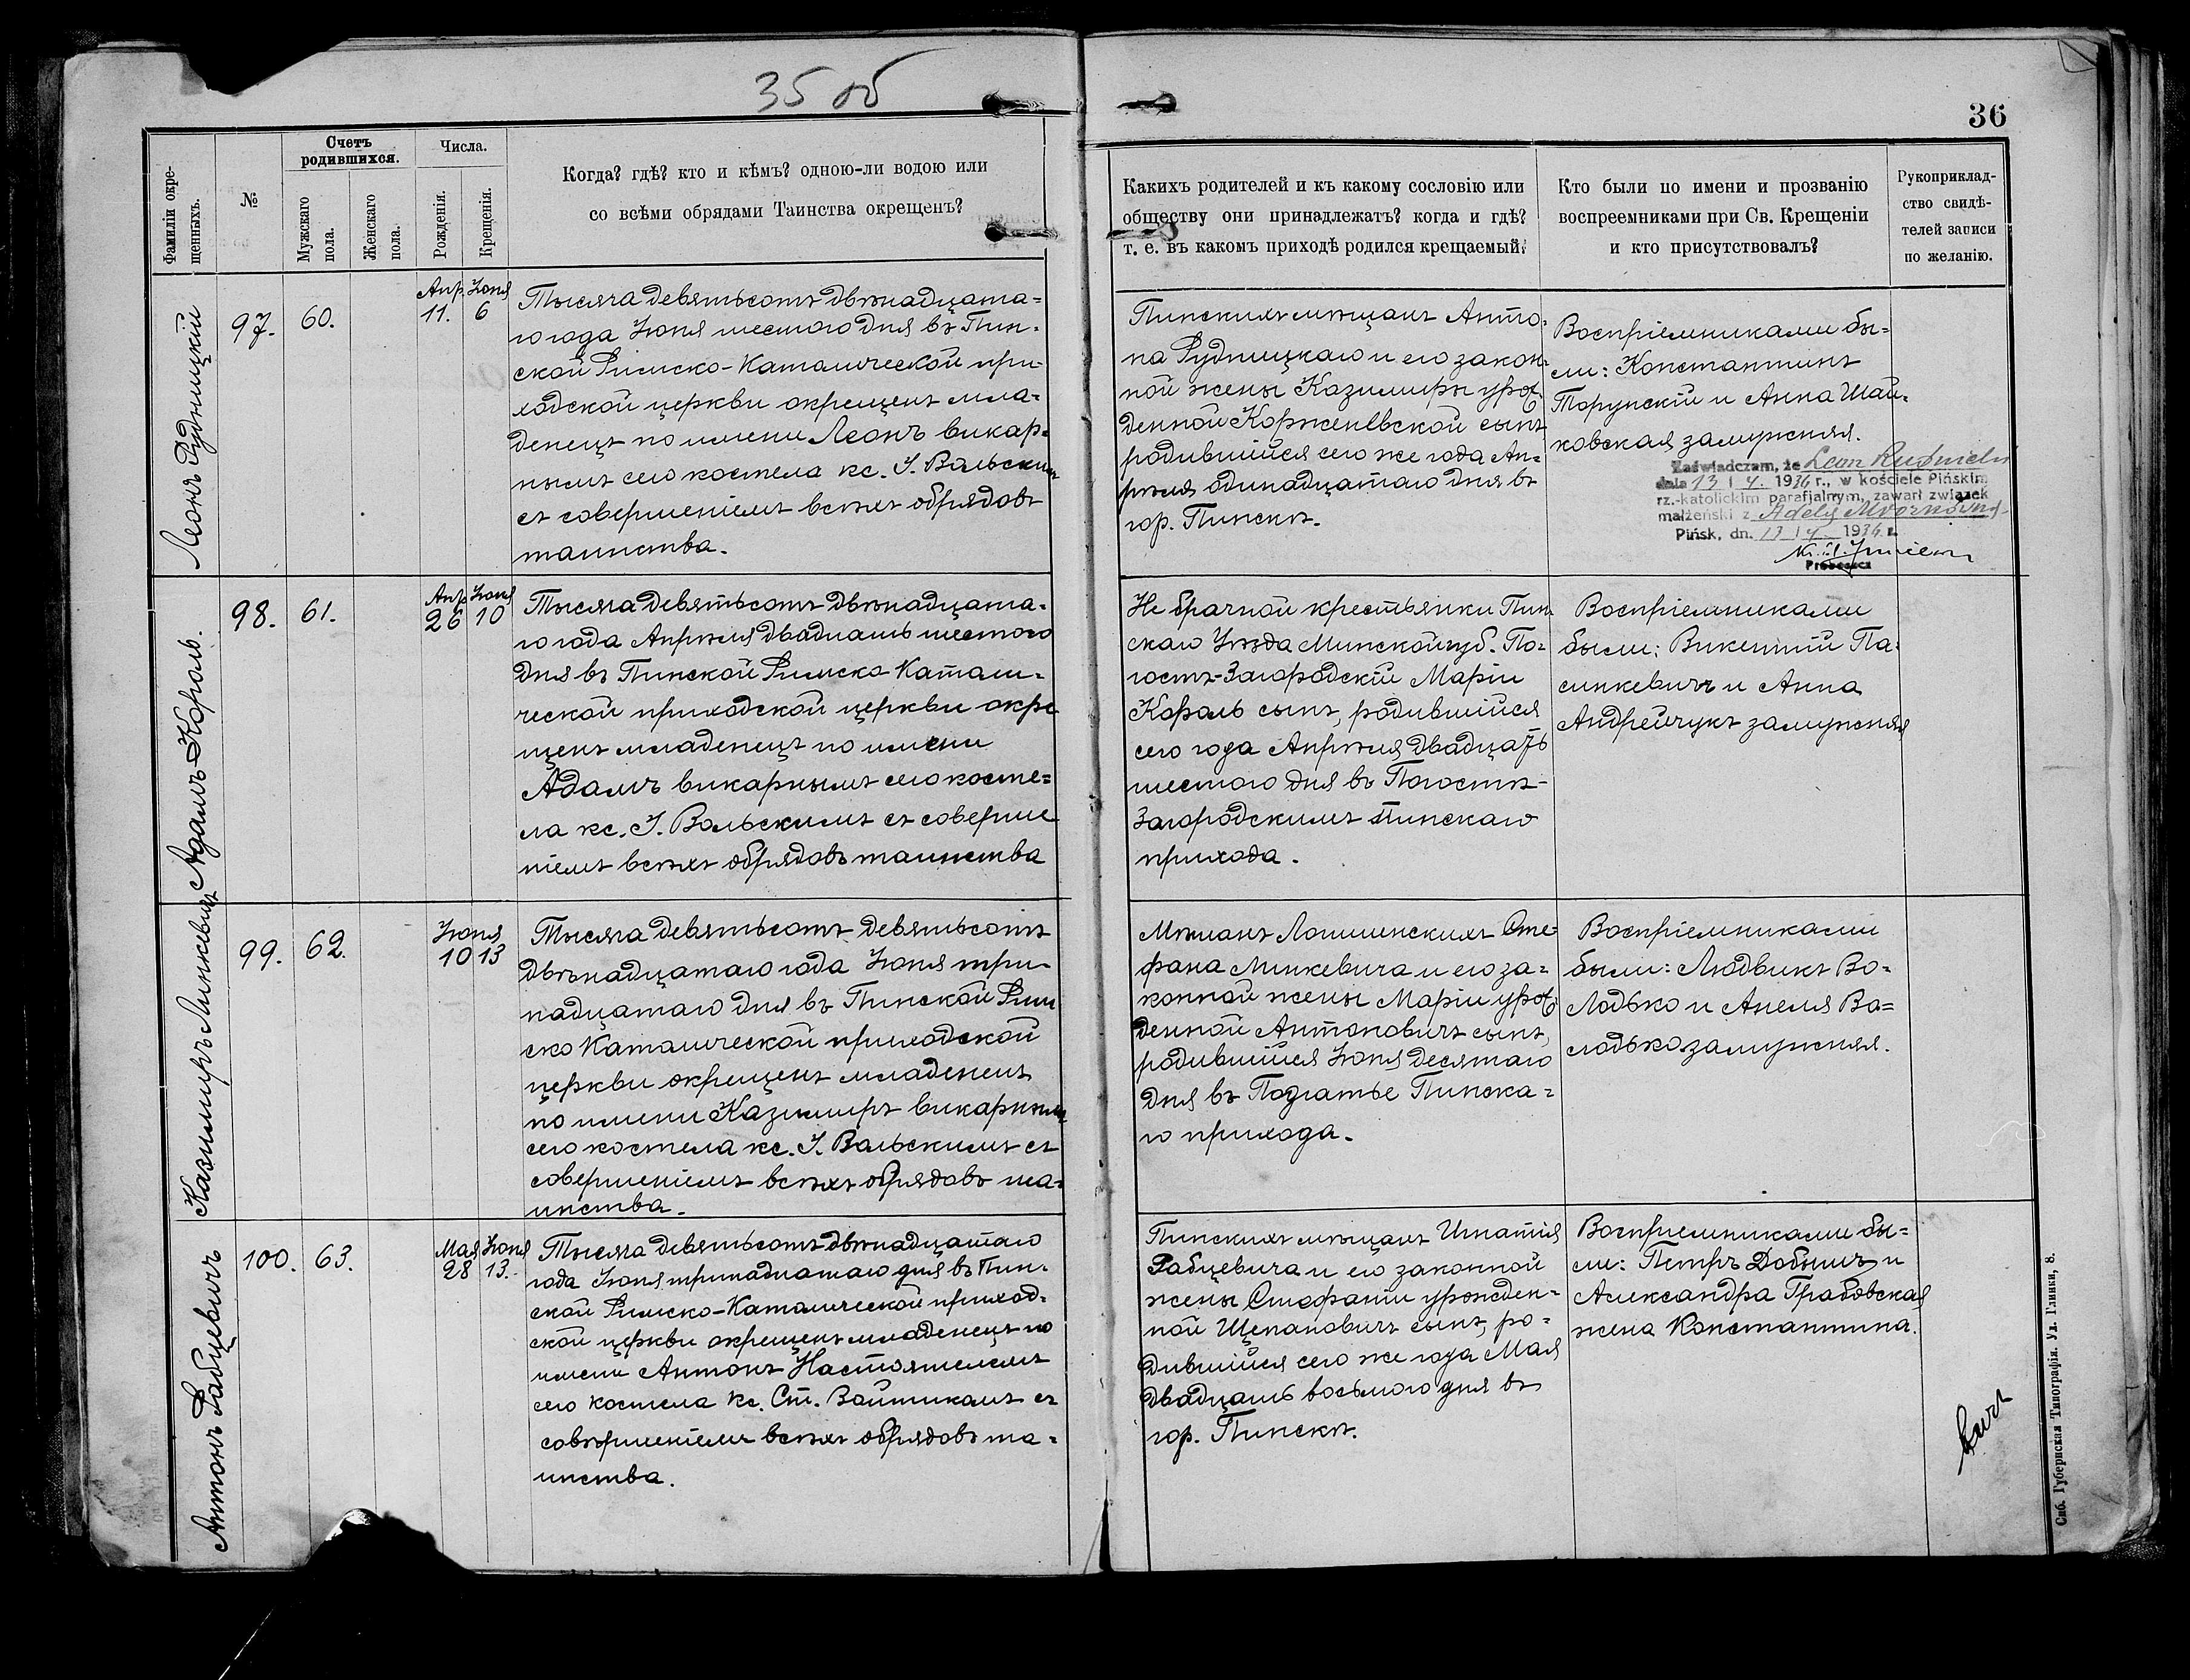 35 об
36
Фамиліи окре-
щенныхъ.
№
Счетъ
родившихся.
Мужскаго
пола.
Женскаго
пола.
Числа.
Рожденія.
Крещенія.
Когда? гдѣ? кто и кѣмъ? одною-ли водою или
со всѣми обрядами Таинства окрещенъ?
Какихъ родителей и къ какому сословію или
обществу они принадлежатъ? когда и гдѣ?
т. е. въ какомъ приходѣ родился крещаемый?
Кто были по имени и прозванію
воспреемниками при Св. Крещеніи
и кто присутствовалъ?
Рукоприклад-
ство свидѣ-
телей записи
по желанію.
Леонъ Рудницкій
97.
60.
Апр. Іюня
11. 6
Тысяча девятьсотъ двѣнадцата-
го года Іюня шестого дня въ Пин-
ской Римско-Католической при-
ходской церкви окрещенъ мла-
денецъ по имени Леонъ викар-
нымъ сего костела кс. І. Вольскимъ
съ совершеніемъ всѣхъ обрядовъ
таинства.
Пинскихъ мѣщанъ Анто-
на Рудницкаго и его закон-
ной жены Казимиры урож-
денной Корженевской сынъ
родившійся сего же года Ап-
рѣля одинадцатаго дня въ
гор. Пинскѣ.
Воспріемниками бы-
ли: Константинъ
Торунскій и Анна Шай-
ковская замужняя.
Zaświadczam, że Leon Rudnicki
dnia 13 | 4. 1936 r., w kościele Pińskim
rz.-katolickim parafjalnym, zawarł związek
małżeński z Adelą
Pińsk, dn. 13 | 4. 1936 r.
Proboszcz
Адамъ Король.
98.
61.
Апр Іюня
26 10
Тысяча девятьсотъ двѣнадцата-
го года Апрѣля двадцать шестого
дня въ Пинской Римско-Катали-
ческой приходской церкви окре
щенъ младенецъ по имени
Адамъ викарнымъ сего косте-
ла кс. І. Вольскимъ съ соверше
ніемъ всѣхъ обрядовъ таинства
Не брачной крестьянки Пин-
скаго Уѣзда Минской губ. По-
гостъ-Загородскій Маріи
Король сынъ, родившійся
сего года Апрѣля двадцать
шестого дня въ Погостѣ-
Загородскимъ Пинскаго
прихода.
Воспріемниками
были: Викентій Па-
синкевичъ и Анна
Андрейчукъ замужняя
Казимиръ Минкевичъ
99.
62.
Іюня
10 13
Тысяча девятьсотъ девятьсотъ
двѣнадцатаго года Іюня три-
надцатаго дня въ Пинской Рим
ско Каталической приходской
церкви окрещенъ младенецъ
по имени Казимиръ викарнымъ
сего костела кс. І. Вольскимъ съ
совершеніемъ всѣхъ обрядовъ та-
инства.
Мѣщанъ Логишинскихъ Сте-
фана Минкевича и его за-
конной жены Маріи урож-
денной Антоновичъ сынъ,
родившійся Іюня десятаго
дня въ Пинска-
го прихода.
Воспріемниками
были: Людвикъ Во-
лодько и Анеля Во-
лодько замужняя.
Антонъ Рабцевичъ
100.
63.
Мая Іюня
28 13.
Тысяча девятьсотъ двѣнадцатаго
года Іюня тринадцатаго дня въ Пин-
ской Римско-Каталической приход-
ской церкви окрещенъ младенецъ по
имени Антонъ Настоятелемъ
сего костела кс. Ст. Войтикамъ съ
совершеніемъ всѣхъ обрядовъ та-
инства.
Пинскихъ мѣщанъ Игнатія
Рабцевича и его законной
жены Стефаніи урожден-
ной Щепановичъ сынъ, ро-
дившійся сего же года Мая
двадцать восьмого дня въ
гор. Пинскѣ.
Воспріемниками бы-
ли: Петръ Добышъ и
Александра Грабовская
жена Константина.
Спб. Губернская Типографія. Ул. Глинки, 8.